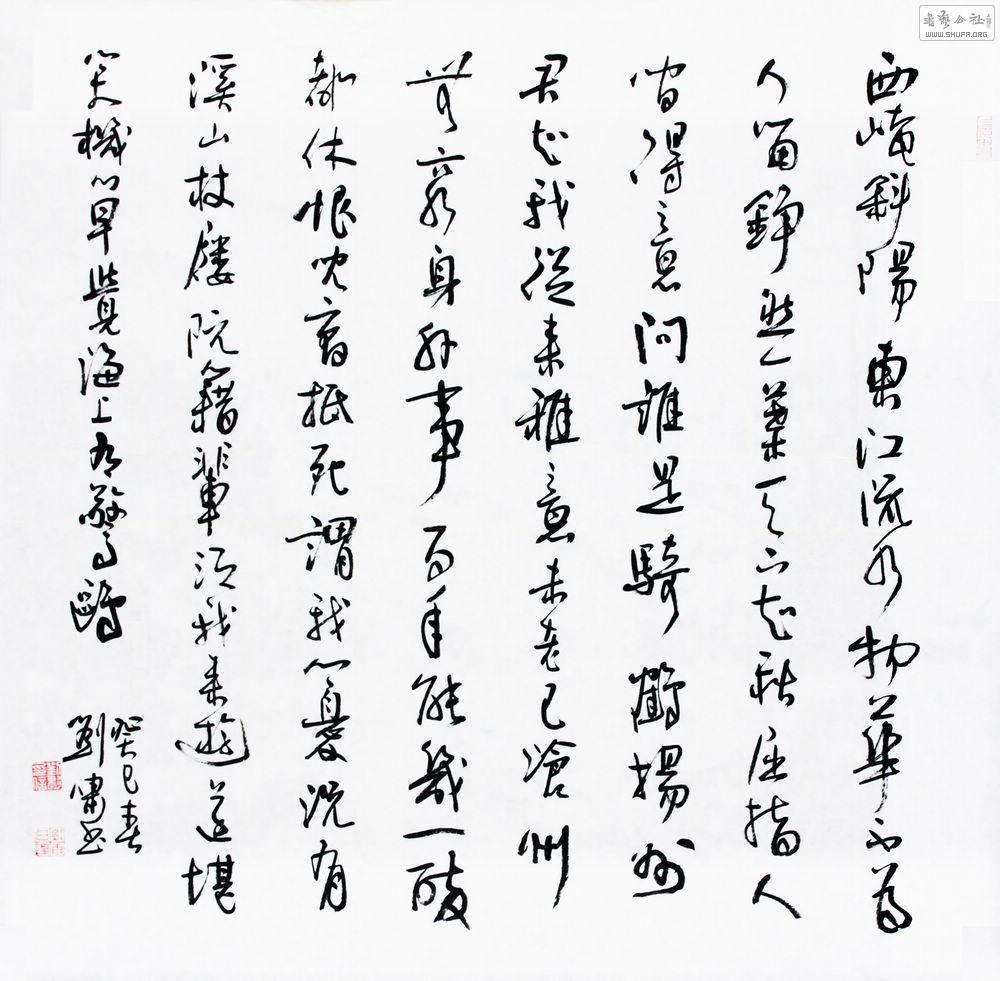 西崦斜陽東江流水物華不為
人留錚然一葉天下知秋屈指人
間得意問誰是騎鶴揚州
君知我從來雅意未老已滄州
無窮身外事百年能幾一醉
都休恨兒曹抵死謂我心憂況有
溪山杖屨阮籍輩須我來遊還堪
笑機心早覺海上有驚鷗
癸巳春
劉書
书艺公社
WWW.SHUFA.ORG